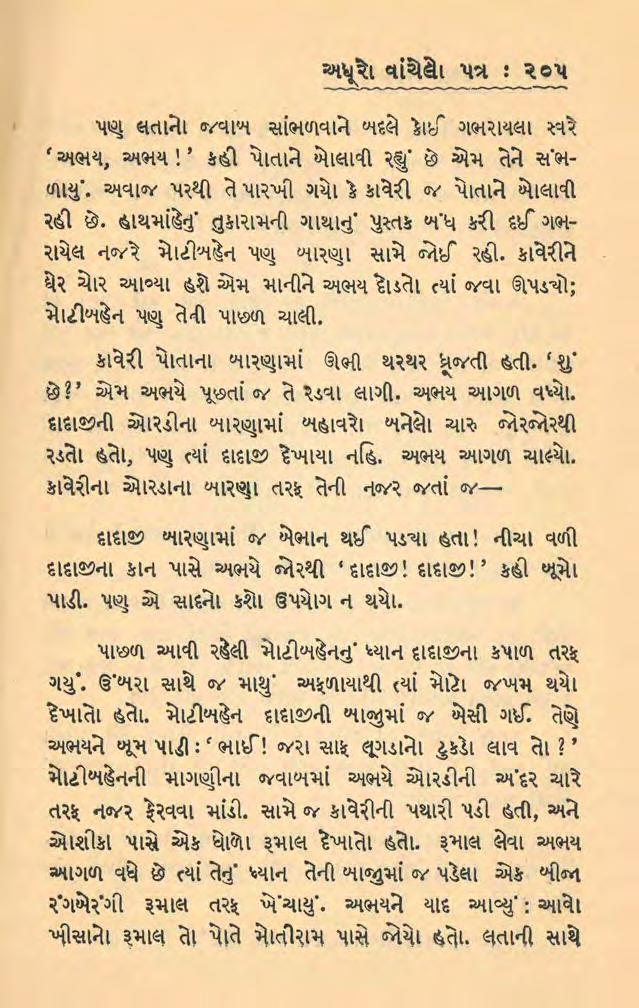 અધૂરો વાંચેલો પત્ર : ૨૦૫
પણ લતાનો જવાબ સાંભળવાને બદલે કોઈ ગભરાયલા સ્વરે
‘અભય, અભય !’ કહી પોતાને બોલાવી રહ્યું છે એમ તેને સંભ-
ળાયું. અવાજ પરથી તે પારખી ગયો કે કાવેરી જ પોતાને બોલાવી
રહી છે. હાથમાંહેનું તુકારામની ગાથાનું પુસ્તક બંધ કરી દઈ ગભ-
રાયેલ નજરે મોટીબહેન પણ બારણા સામે જોઈ રહી. કાવેરીને
ઘેર ચોર આવ્યા હશે એમ માનીને અભય દોડતો ત્યાં જવા ઊપડચો;
મોટીબહેન પણ તેની પાછળ ચાલી.
કાવેરી પોતાના બારણામાં ઊભી થરથર ધ્રૂજતી હતી. ‘શું
છે?’ એમ અભયે પૂછતાં જ તે રડવા લાગી. અભય આગળ વધ્યો.
દાદાજીની ઓરડીના બારણામાં બહાવરો બનેલો ચારુ જોરજોરથી
રડતો હતો, પણ ત્યાં દાદાજી દેખાયા નહિ. અભય આગળ ચાલ્યો.
કાવેરીના ઓરડાના બારણા તરફ તેની નજર જતાં જ—
દાદાજી બારણામાં જ બેભાન થઈ પડચા હતા! નીચા વળી
દાદાજીના કાન પાસે અભયે જોરથી ‘દાદાજી! દાદાજી!’ કહી બૂમો
પાડી. પણ એ સાદનો કશો ઉપયોગ ન થયો.
પાછળ આવી રહેલી મોટીબહેનનું ધ્યાન દાદાજીના કપાળ તરફ
ગયું. ઉંબરા સાથે જ માથું અફળાયાથી ત્યાં મોટો જખમ થયો
દેખાતો હતો. મોટીબહેન દાદાજીની બાજુમાં જ બેસી ગઈ. તેણે
અભયને બૂમ પાડી : ‘ભાઈ! જરા સાફ લૂગડાનો ટુકડો લાવ તો ?’
મોટીબહેનની માગણીના જવાબમાં અભયે ઓરડીની અંદર ચારે
તરફ નજર ફેરવવા માંડી. સામે જ કાવેરીની પથારી પડી હતી, અને
ઓશીકા પાસે એક ધોળો રૂમાલ દેખાતો હતો. રૂમાલ લેવા અભય
આગળ વધે છે ત્યાં તેનું ધ્યાન તેની બાજુમાં જ પડેલા એક બીજા
રંગબેરંગી રૂમાલ તરફ ખેંચાયું. અભયને યાદ આવ્યું : આવો
ખીસાનો રૂમાલ તો પોતે મોતીરામ પાસે જોયો હતો. લતાની સાથે